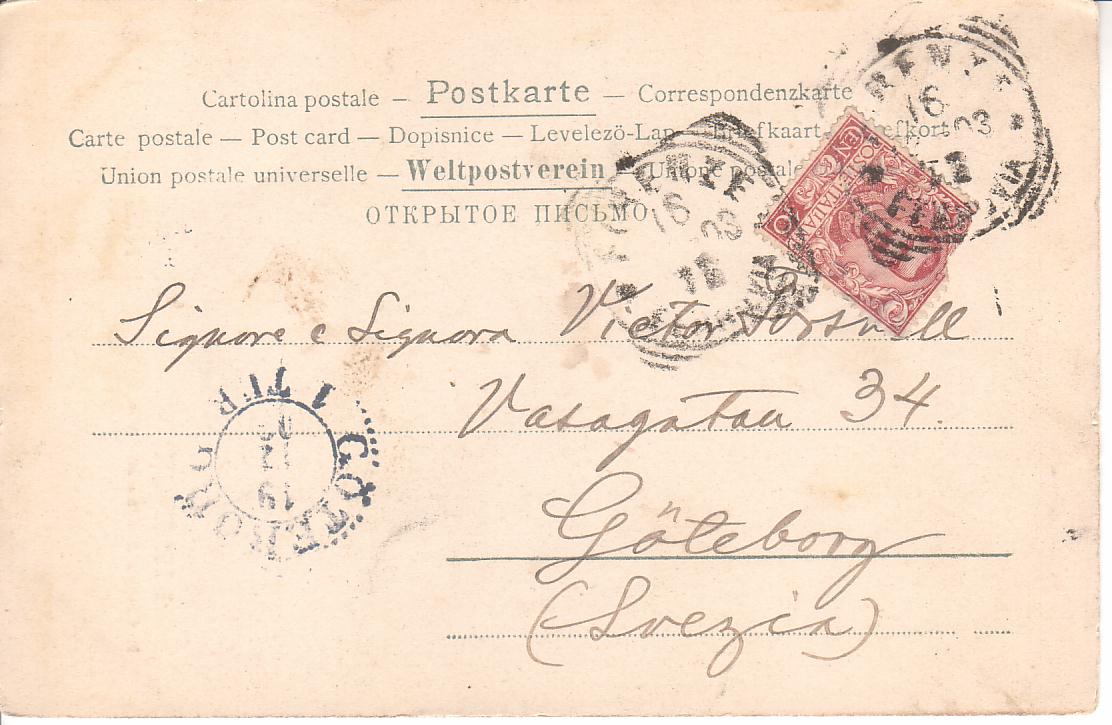 Cartolina postale — Postkarte — Correspondenzkarte
Carte postale — Post card — Dopisnice — Levelezö-Lap — Briefkaart — Brefkort
Union postale universelle — Weltpostverein — Unione postale
ОТКРЫТОЕ ПИСЬМО
FIRENZE
16
03
Signore e Signora Victor
Vasagatan 34.
Göteborg
(Svezia)
GÖTEBORG
1 TUR
19
12
03